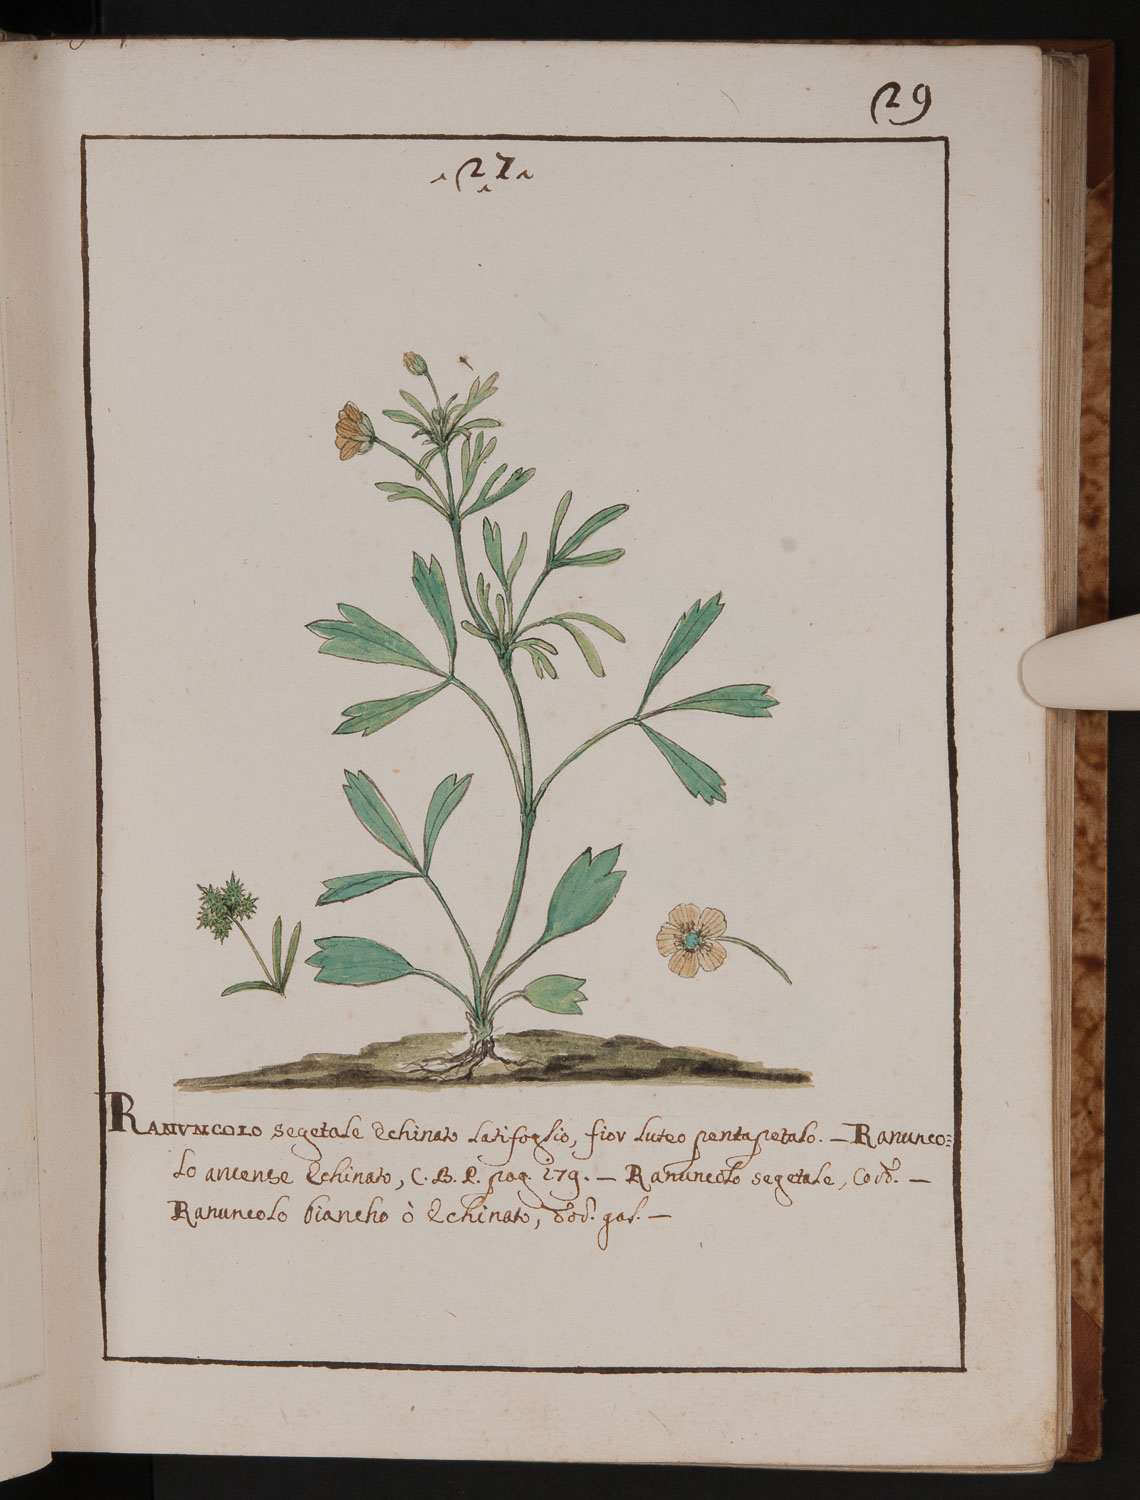 29
27
RANVNCOLO segetale Echinato latifoglio, fior luteo pentapetalo. — Ranunco=
lo aruense Echinato, C. B. P. pag. 179. — Ranuncolo segetale, Cord. —
Ranuncolo biancho ò Echinato, dod. gal. —